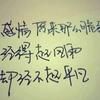 感情原来那么可悲
经得起风雨
却经不起平凡